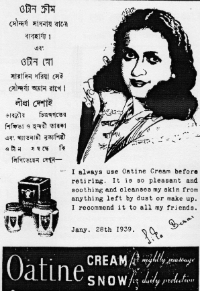 ওটীন ক্রীম
সৌন্দর্য্য সাধনায় রাত্রে
ব্যবহার্য্য।
এবং
ওটীন স্নো
সারাদিন ধরিয়া সেই
সৌন্দর্য্য অম্লান রাখে।
লীলা দেশাই
শিক্ষিতা ও সুন্দরী তারকা
ওটীন সম্বন্ধে কি
লিখিতেছেন দেখুন—
I always use Oatine Cream before
retiring. It is so pleasant and
soothing and cleanses my skin from
anything left by dust or make up.
I recommend it to all my friends.
Jany. 28th 1939.
Oatine CREAM for nightly massage
SNOW for daily protection